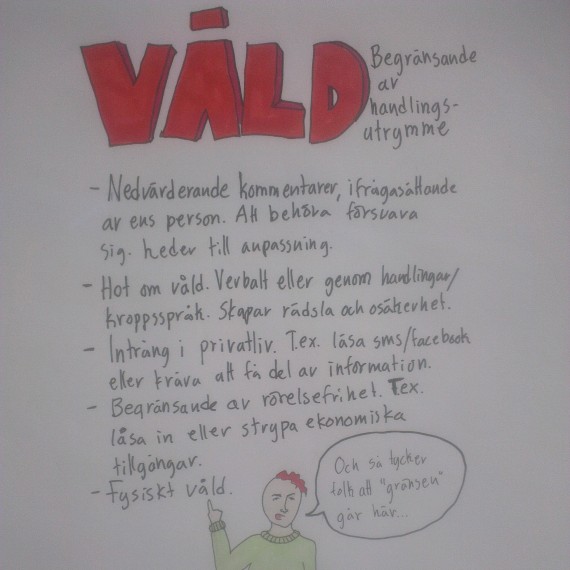 VÅLD
Begränsande
av
handlings-
utrymme
- Nedvärderande kommentarer, ifrågasättande
av ens person. Att behöva försvara
sig. heder till anpassning.
- Hot om våld. Verbalt eller genom handlingar/
kroppsspråk. Skapar rädsla och osäkerhet.
- Intrång i privatliv. T.ex. läsa sms/facebook
eller kräva att få del av information.
- Begränsande av rörelsefrihet. Tex.
låsa in eller strypa ekonomiska
tillgångar.
- Fysiskt våld.
Och så tycker
folk att "gränsen"
går här...